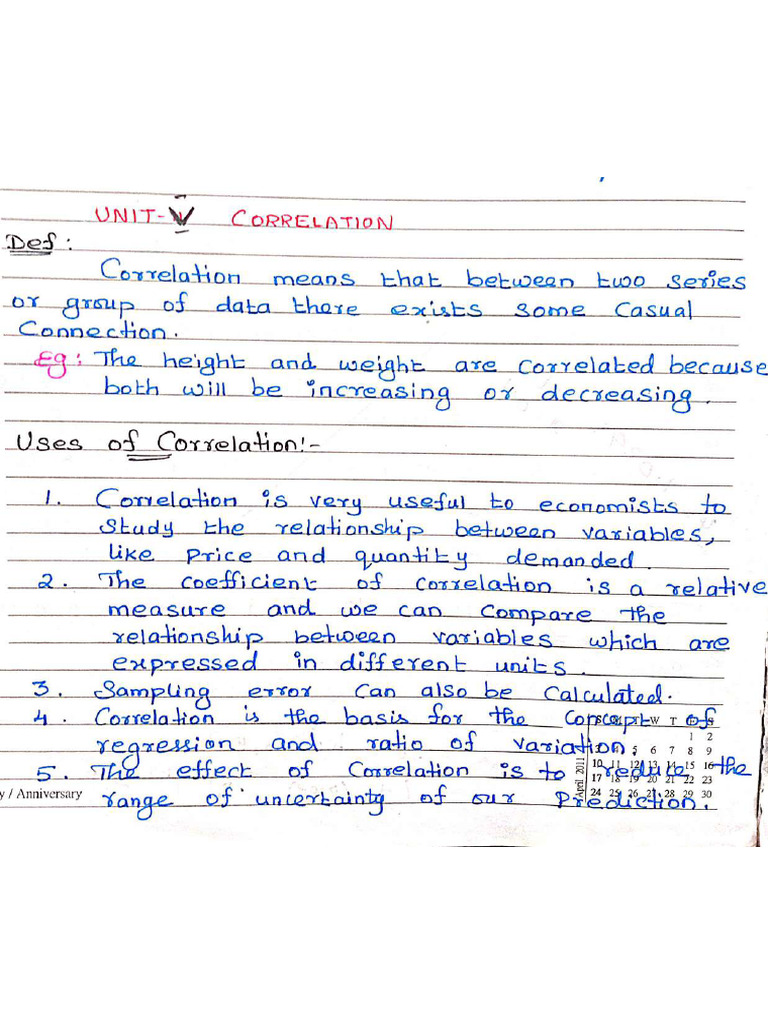 UNIT-V CORRELATION
Def:
Correlation means that between two series
or group of data there exists some Casual
Connection.
Eg: The height and weight are correlated because
both will be increasing or decreasing.
Uses of Correlation:-
1. Correlation is very useful to economists to
study the relationship between variables,
like price and quantity demanded.
2. The coefficient of correlation is a relative
measure and we can compare the
relationship between variables which are
expressed in different units.
3. Sampling error can also be calculated.
4. Correlation is the basis for the concept of
W T
1 2
regression and ratio of variation.
5 6 7 8 9
5. The effect of Correlation is to redure the
April 2011
10 11 12 13 14 15 16
17 18 19 20 21 22 23
y / Anniversary
range of uncertainty of our Prediction.
24 25 26 27 28 29 30